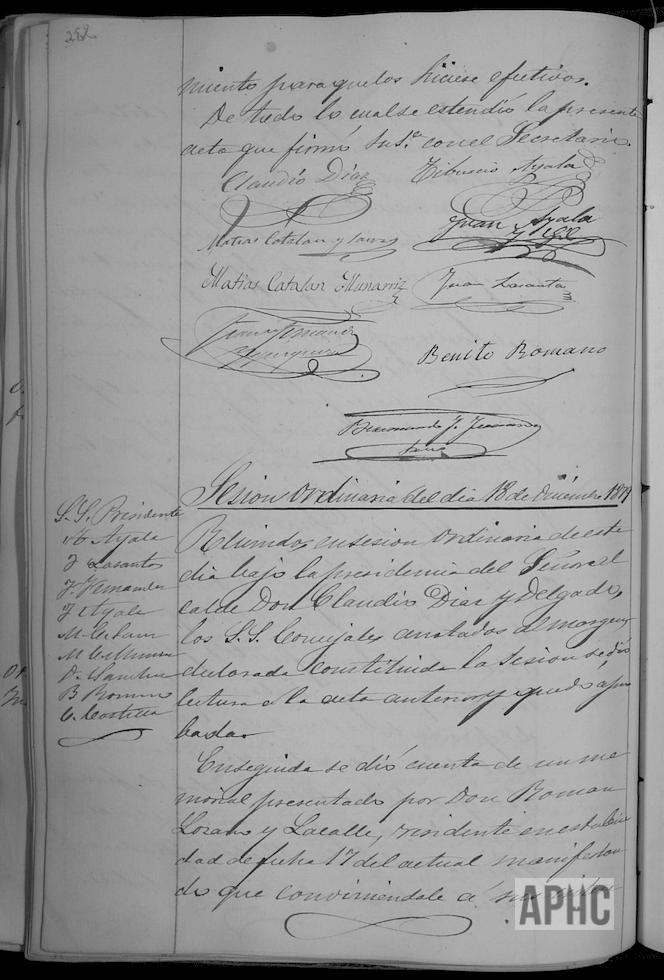 282
miento para que los hiciese efectivos.
De todo lo cual se estendió la presente
acta que firmó su Sª con el Secretario.
Claudio Diaz
Tiburcio Ayala
Matias Catalan y Sanz
Juan Ayala
y Gil
Matias Catalan Manarriz
Juan Lasanta
Juan Fernandez
Benito Romano
Bernardo J. Fernandez
Sesion ordinaria del dia 18 de Diciembre 1879
S. S. Presidente
Ayala
J Lasantas
J. Fernandez
J Ayala
M
M
B Romano
Reunidos en sesion ordinaria de este
dia bajo la presidencia del Señor al
calde Don Claudio Diaz y Delgado,
los S. S. Concejales anotados al margen y
declarada constituida la sesion se dió
lectura a la acta anterior y quedó apro
bada.
Enseguida se dió cuenta de un me
morial presentado por Don Roman
Lozano y Lacalle, residente en esta Ciu
dad de fecha 17 del actual manifestan
do que conviniendole a sus
APHC